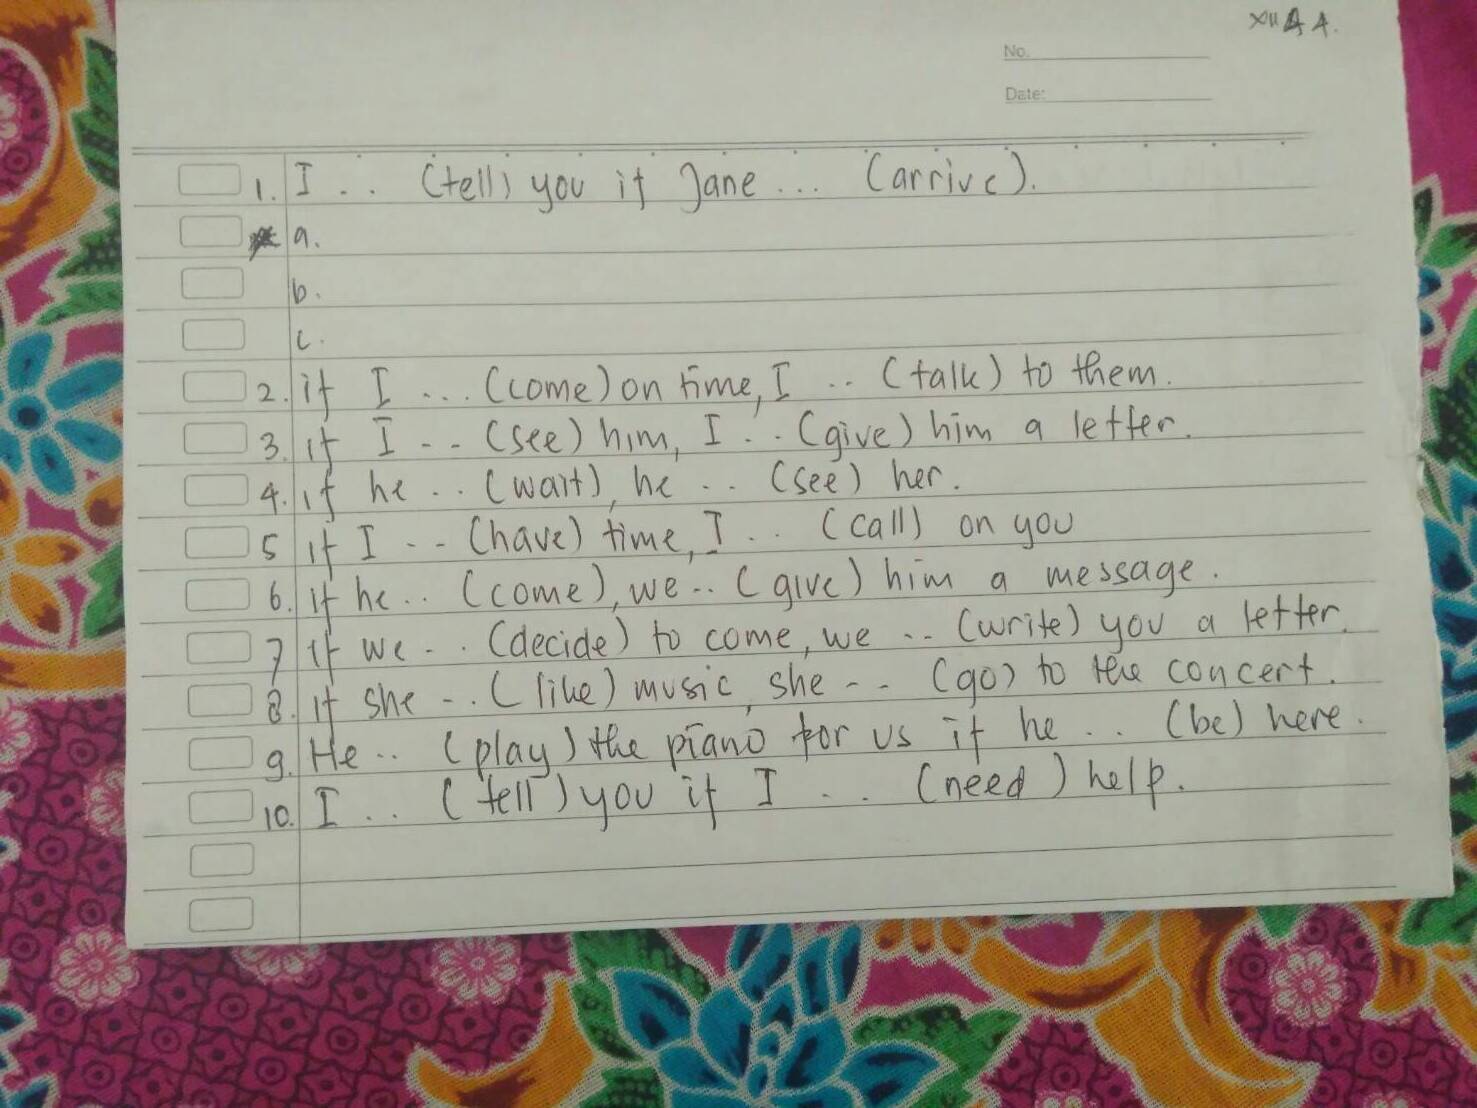 XII A 4.
No.
Date:
1. I .. (tell) you if Jane ... (arrive).
a.
b.
c.
2. if I ... (come) on time, I .. (talk) to them.
3. if I -- (see) him, I .. (give) him a letter.
4. if he .. (wait), he .. (see) her.
5 if I -- (have) time, I .. (call) on you
6. if he .. (come), we .. (give) him a message.
7 if we - . (decide) to come, we .. (write) you a letter.
8. if she -.. (like) music, she -- (go) to the concert.
9. He .. (play) the piano for us if he .. (be) here.
10. I .. (tell) you if I .. (need) help.